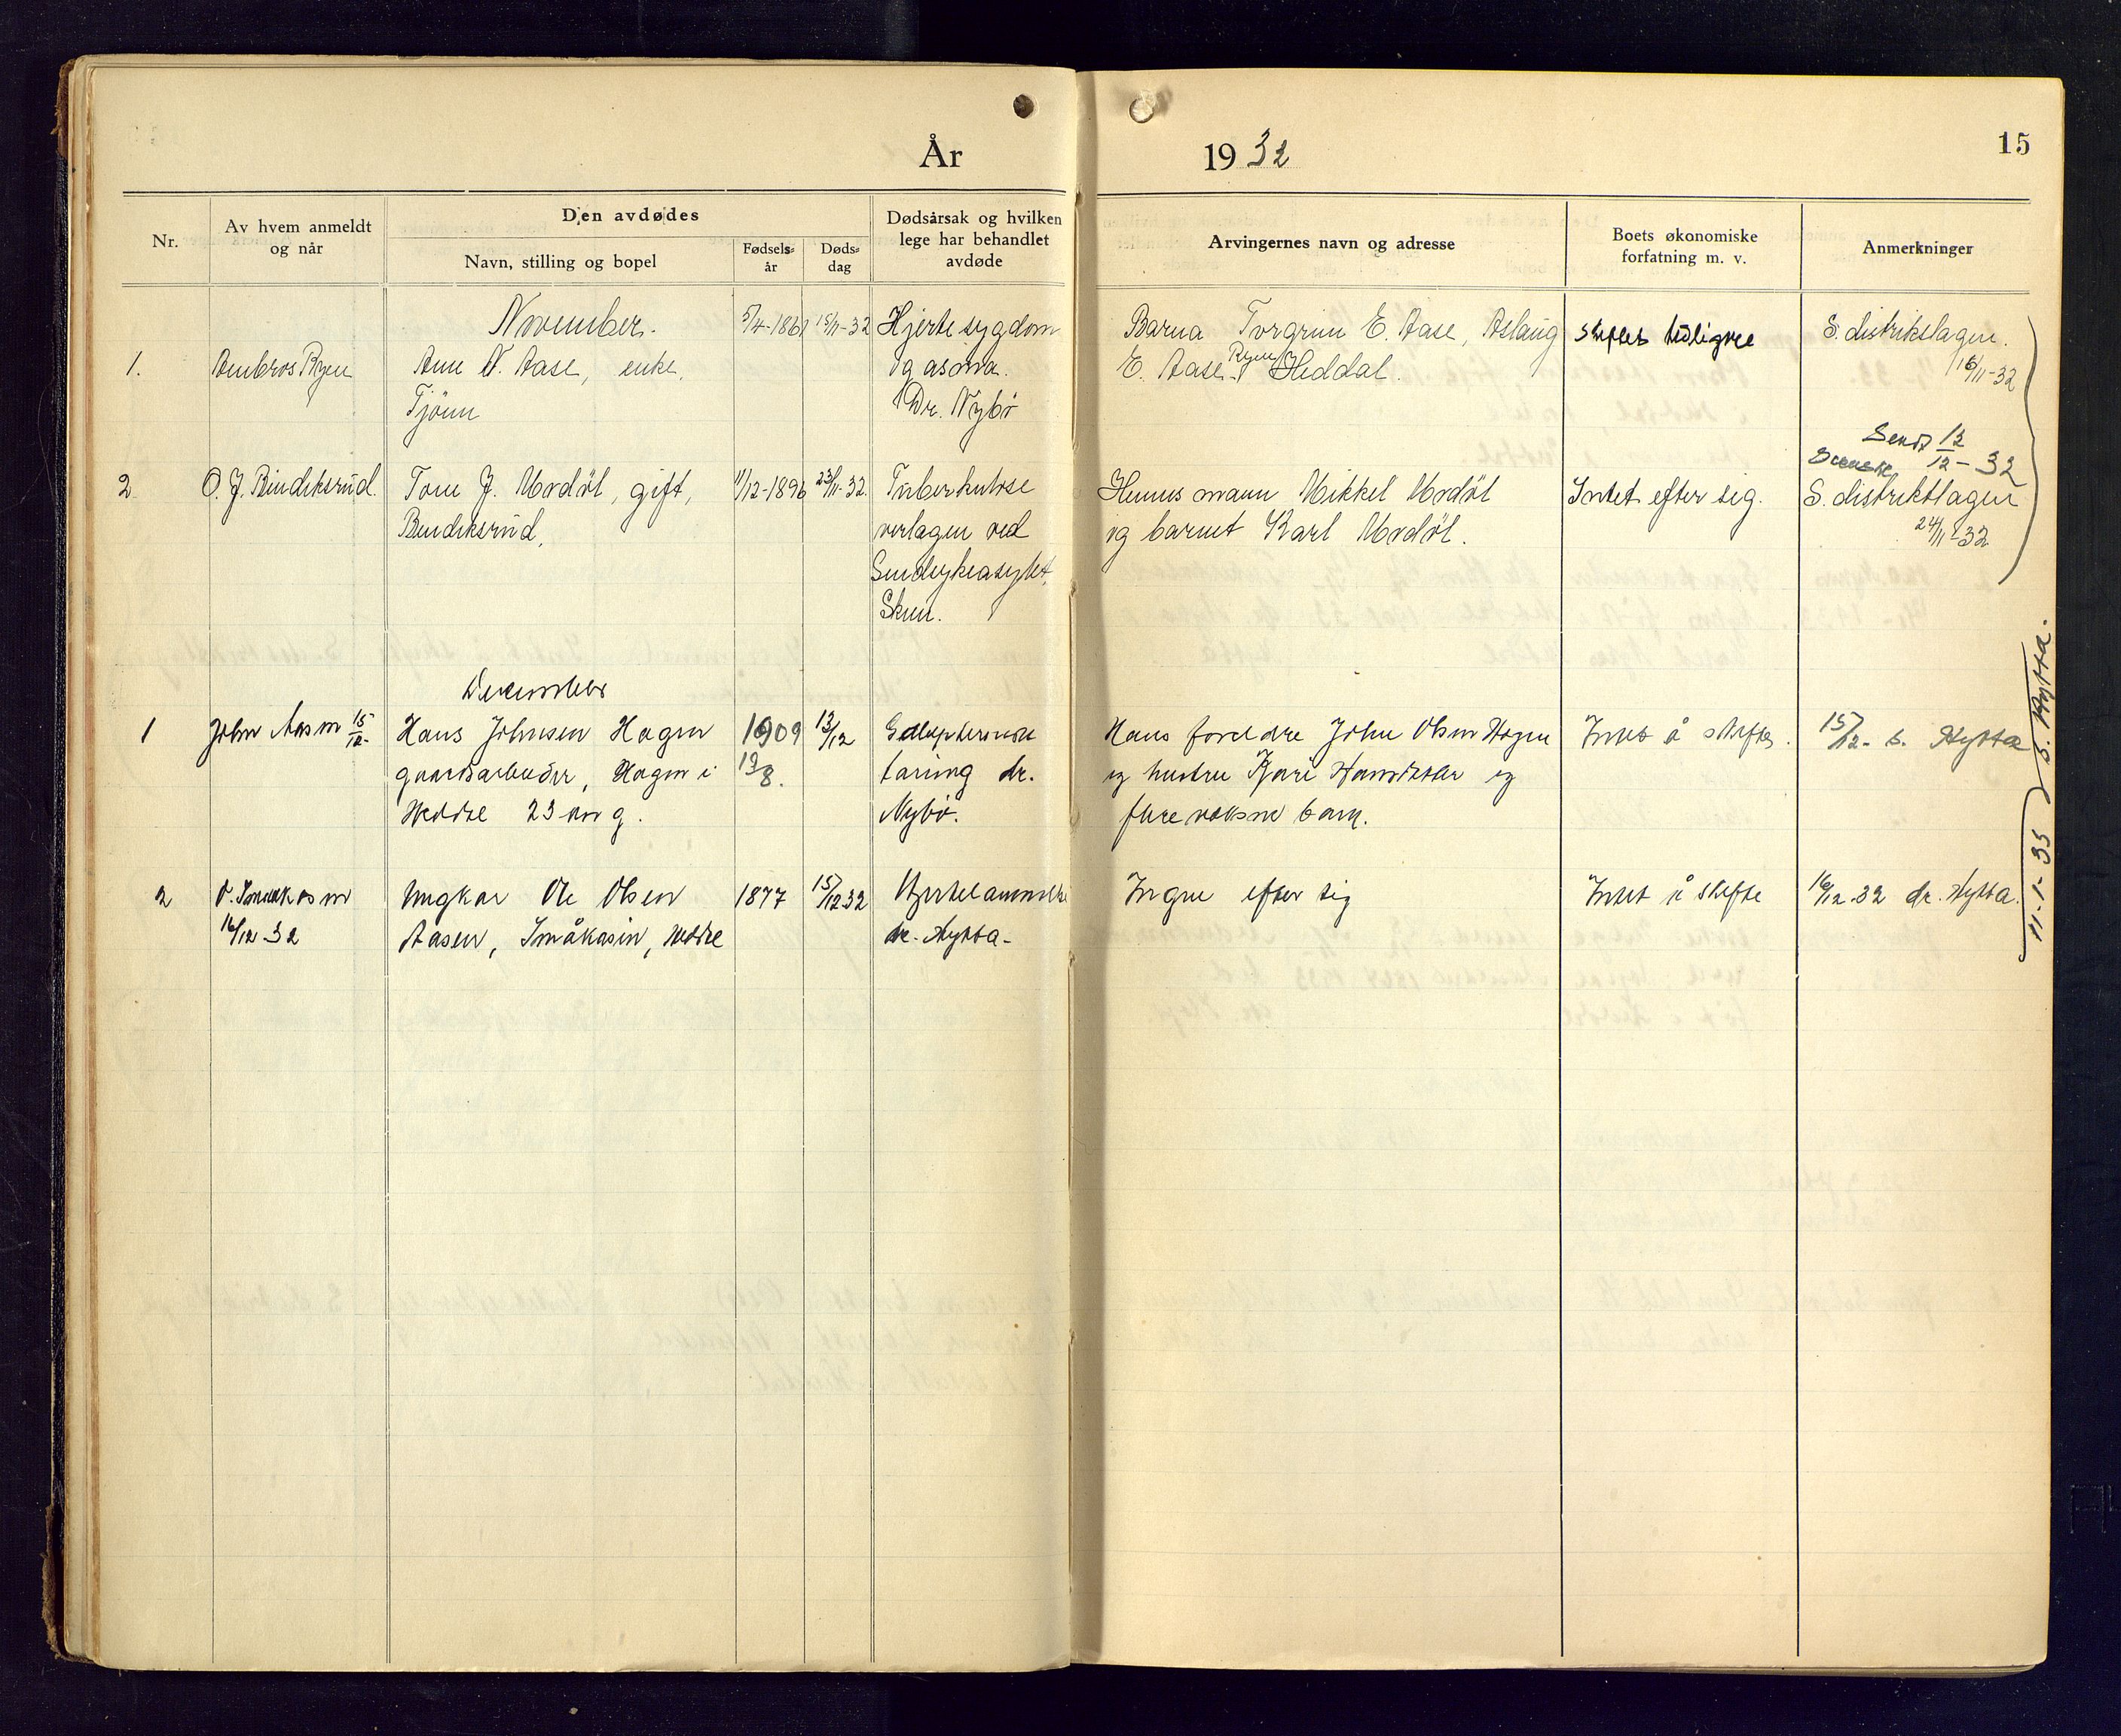 År 1932
15
Nr.
Av hvem anmeldt og når
Den avdødes
Navn, stilling og bopel
Fødsels-år
Døds-dag
Dødsårsak og hvilken lege har behandlet avdøde
Arvingernes navn og adresse
Boets økonomiske forfatning m. v.
Anmerkninger
November.
1.
Ambros Ryen
Ann N. Aase, enke,
Tjönn
15/11-32
Hjertesygdom
og asma.
Dr. Nybö
Barna Torgrim E. Aase, Aslaug
E. Aase Ryen, Heddal.
skiftet tidligere
S. distriktslagen.
16/11-32
Sendt 13/12-32
2
O. J. Bindiksrud.
Tone J. Modöl, gift,
Bendiksrud,
11/12-1896
23/11-32.
Tuberkulose
Skien.
Hennes mann Mikkel Modöl
og barnet Karl Modöl.
Intet efter sig.
S. distriktslagen
24/11-32
December
1
John Aasen 15/12-
Hans Johnsen Hagen
gaardsarbeider, Hagen i
Heddal 23 aar g.
1909
13/8.
13/12
taring dr.
Nybö.
Hans foreldre John Olsen Hagen
og hustru Kari Hansdatter og
flere voksne barn.
Intet å skifte.
15/12- s. Hytta
2
16/12-32
Ungkar Ole Olsen
Aasen, Småkasin, Heddal
1877
15/12 32
dr. Hytta-
Ingen efter sig
Intet å skifte
16/12-32 dr. Hytta.
11-1-33 s. Hytta.